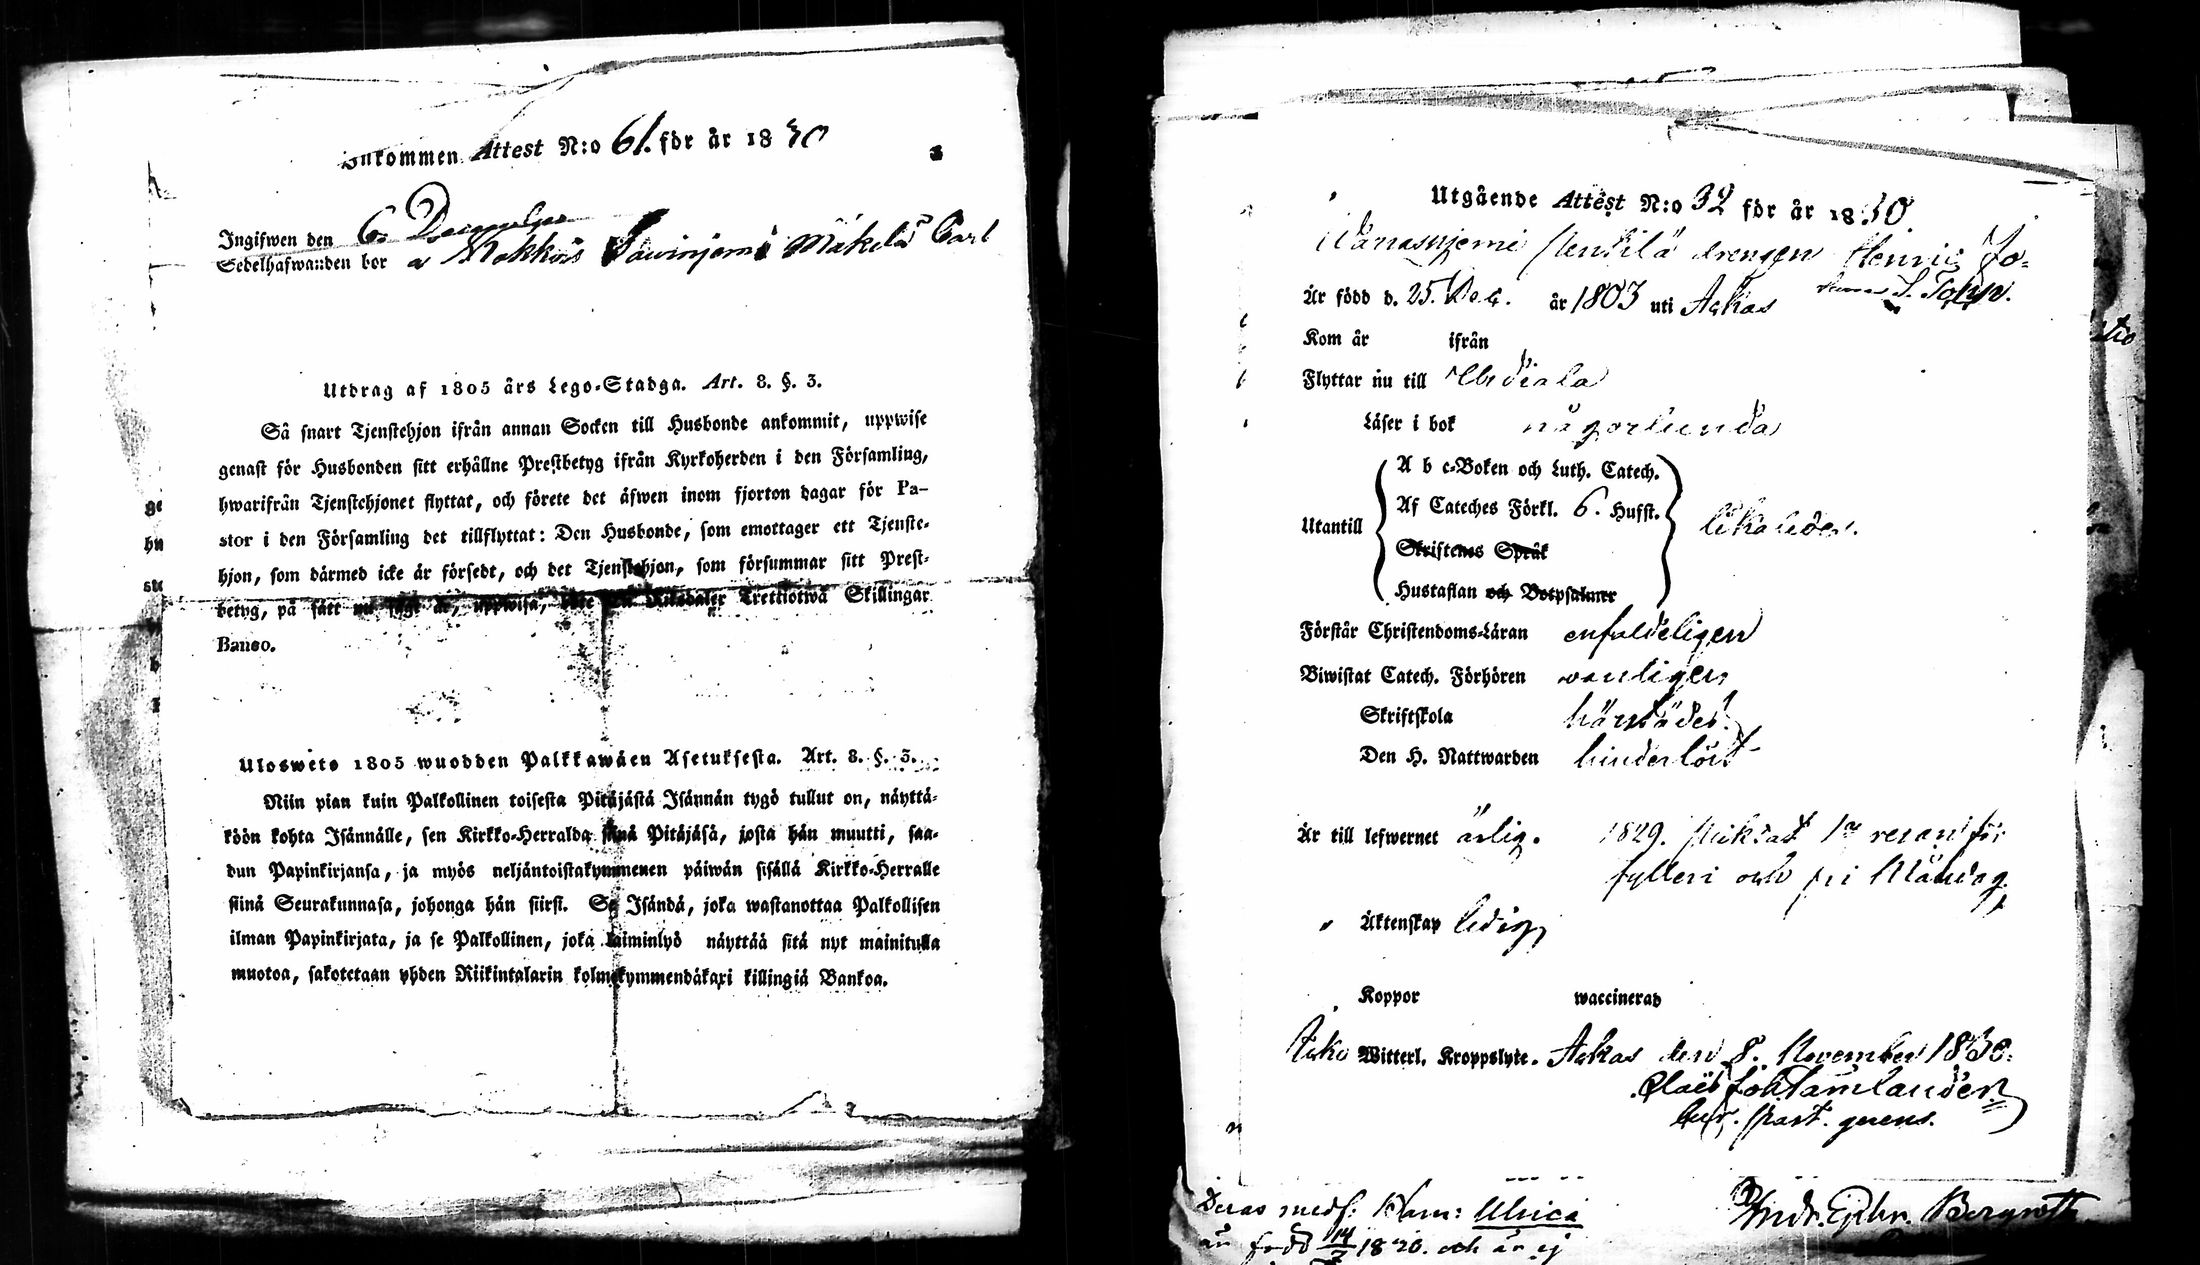 Inkommen Attest N:o 61. för år 1830
Ingifwen den 6 December
Sedelhafwanden bor a Kokkois Sawinjemi Mäkelä Carl
Utdrag af 1805 års Lego-Stadga. Art. 8. §. 3.
Så snart Tjenstehjon ifrån annan Socken till Husbonde ankommit, uppwise
genast för Husbonden sitt erhållne Prestbetyg ifrån Kyrkoherden i den Församling,
hwarifrån Tjenstehjonet flyttat, och förete det äfwen inom fjorton dagar för Pa-
stor i den Församling det tillflyttat: Den Husbonde, som emottager ett Tjenste-
hjon, som därmed icke är försedt, och det Tjenstehjon, som försummar sitt Prest-
betyg, på sätt nu sagt är, uppwisa, Riksdaler Trettiotwå Skillingar
Banco.
Ulosweto 1805 wuodden Palkkawäen Asetuksesta. Art. 8. §. 3.
Niin pian kuin Palkollinen toisesta Pitäjästä Isännän tygö tullut on, näyttä-
köön kohta Isännälle, sen Kirkko-Herralda siinä Pitäjäsä, josta hän muutti, saa-
dun Papinkirjansa, ja myös neljäntoistakymmenen päiwän sisällä Kirkko-Herralle
siinä Seurakunnasa, johonga hän siirsi. Se Isändä, joka wastanottaa Palkollisen
ilman Papinkirjata, ja se Palkollinen, joka laiminlyö näyttää sitä nyt mainitulla
muotoa, sakotetaan yhden Riikintalarin kolmekymmendäkaxi killingiä Bankoa.
Utgående Attest N:o 32 för år 1830
drengen Henric Jo-
Är född d. 25. Dec. år 1803 uti Ackas
Kom år ifrån
Flyttar nu till Urdiala
Läser i bok någorlunda
A b c-Boken och Luth. Catech.
Af Cateches Förkl. 6. Hufst.
Utantill likaledes.
Skriftenes Språk
Hustaflan och Botpsalmer
Förstår Christendoms-Läran enfaldeligen
Biwistat Catech. Förhören wanligen
Skriftskola härstädes
Den H. Nattwarden hinderlöst
Är till lefwernet ärlig. 1829. Pliktat 1a resan för
fylleri och
Äktenskap ledig
Koppor waccinerad
Icke Witterl. Kroppslyte. Ackas den 8. November 1830.
Claës Joh Tamlander
Cur. Past. gerens.
Deras medf: Ulrica
är född 14/2 1820. och är ej
Andr. Ephr. Bergroth